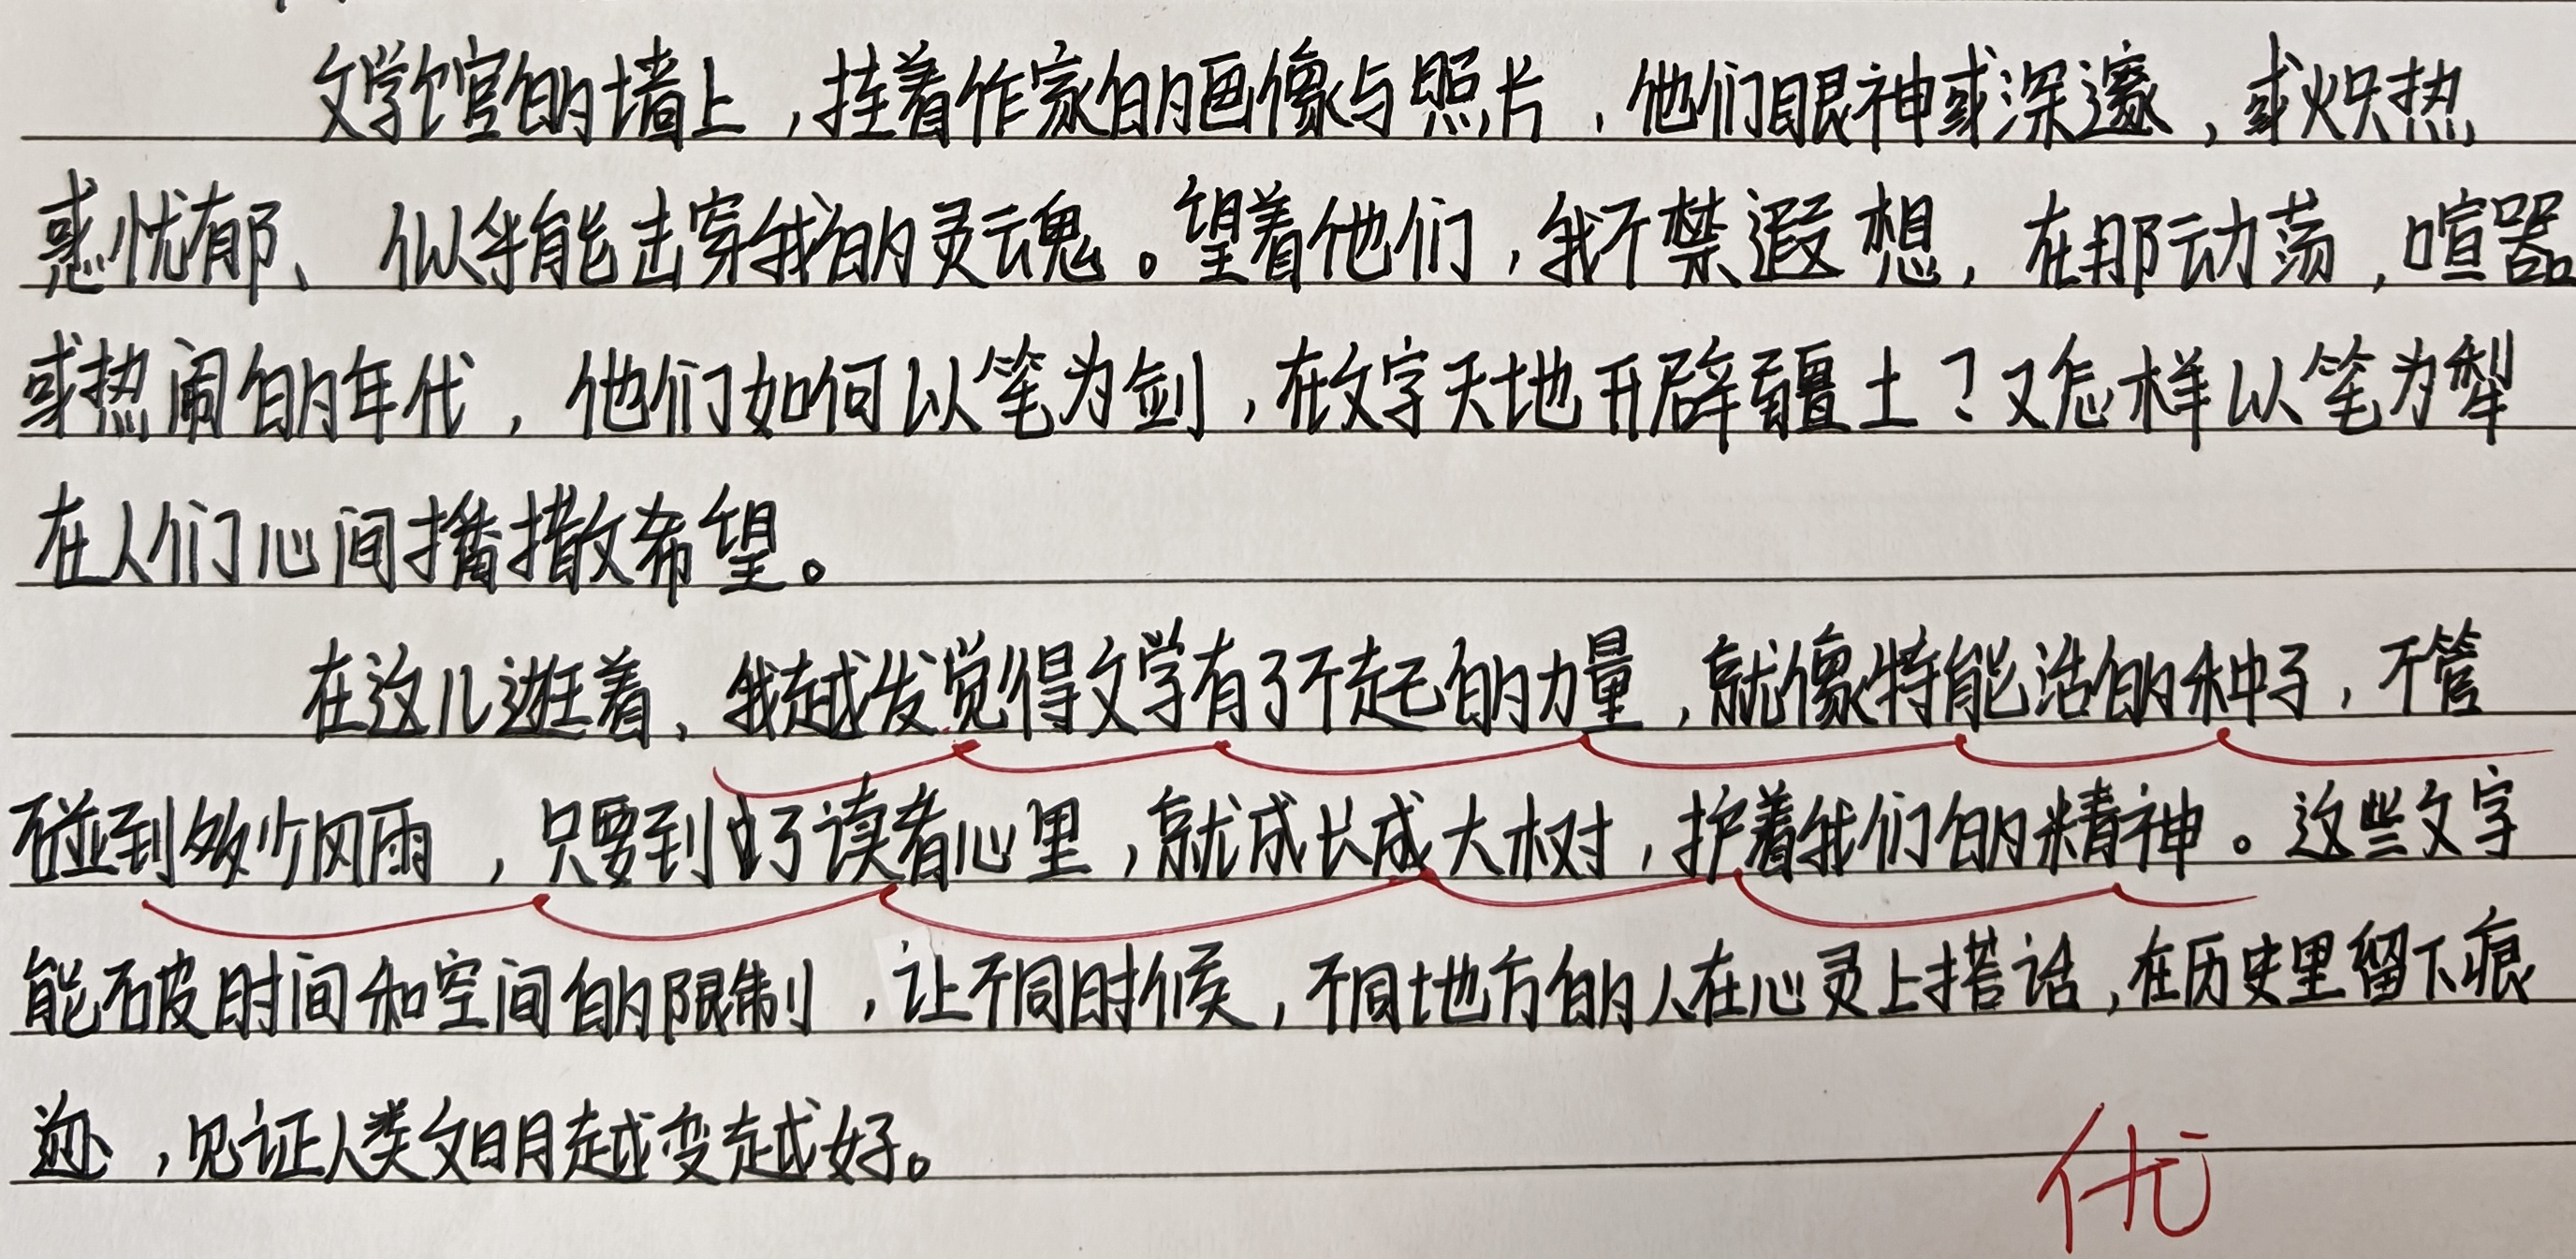 文学馆的墙上，挂着作家的画像与照片，他们眼神或深邃，或炽热
惑忧郁、似乎能击穿我的灵魂。望着他们，我不禁遐想，在那动荡，喧嚣
或热闹的年代，他们如何以笔为剑，在文字天地开辟疆土？又怎样以笔为犁
在人们心间播撒希望。
在这儿逛着、我越发觉得文学有了不起的力量，就像特能活的种子，不管
碰到多少风雨，只要到了读者心里，就成长成大树，护着我们的精神。这些文字
能破时间和空间的限制，让不同时候，不同地方的人在心灵上搭话，在历史里留下痕
迹，见证人类文明越变越好。
优